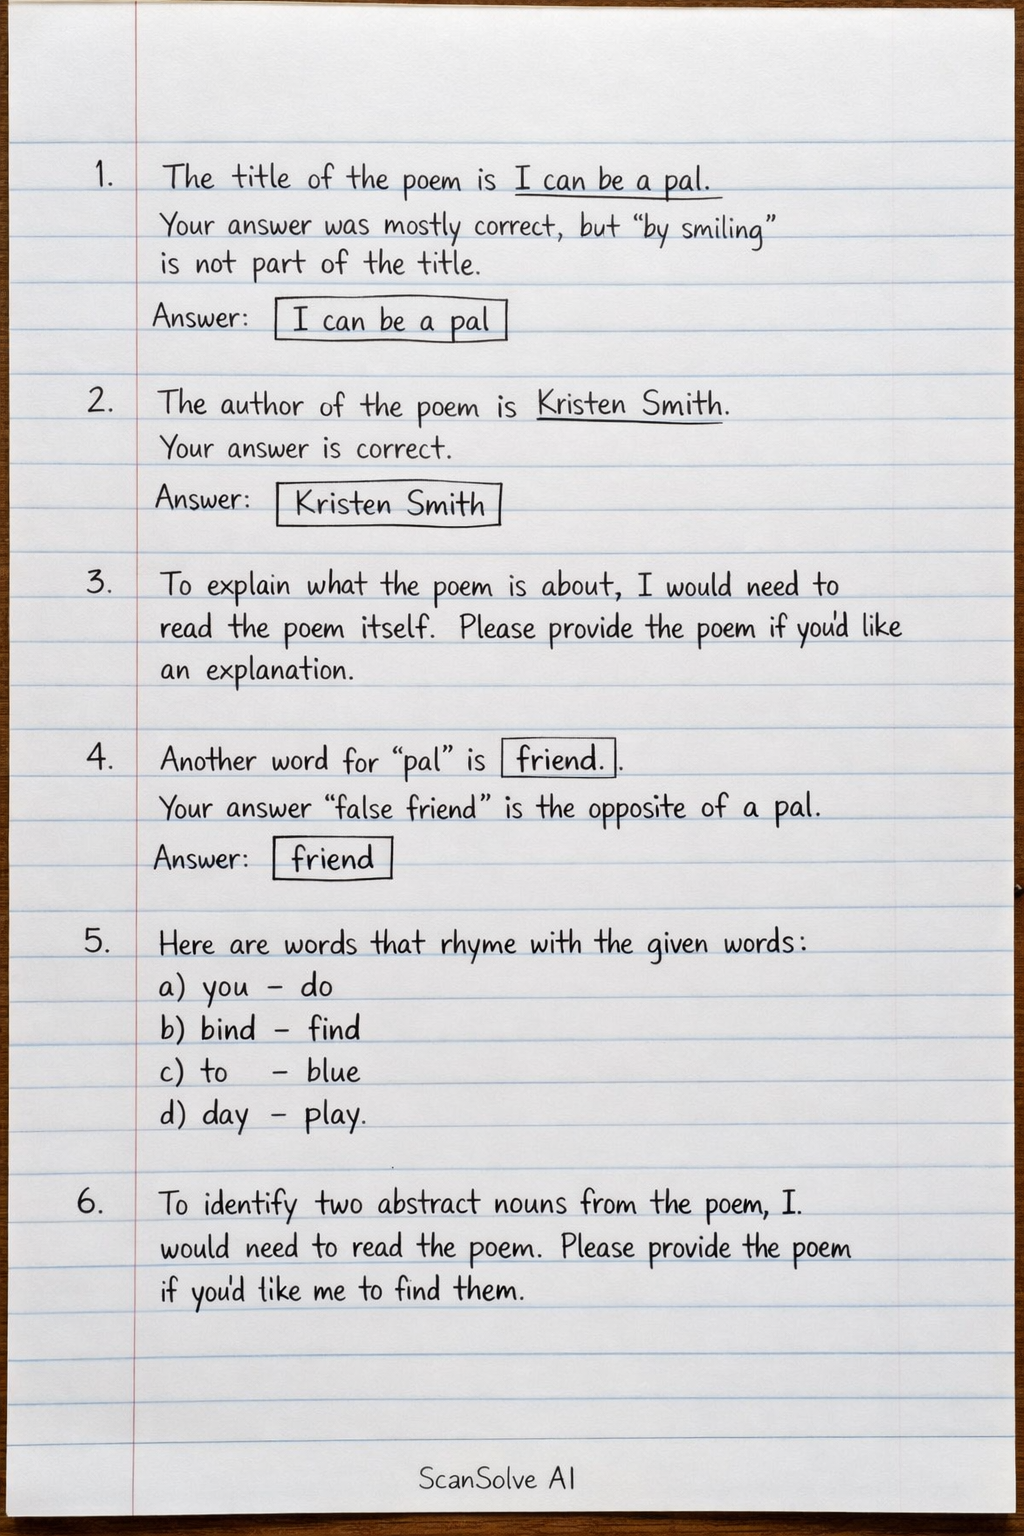 1. The title of the poem is I can be a pal.
Your answer was mostly correct, but “by smiling”
is not part of the title.
Answer: I can be a pal
2. The author of the poem is Kristen Smith.
Your answer is correct.
Answer: Kristen Smith
3. To explain what the poem is about, I would need to
read the poem itself. Please provide the poem if you'd like
an explanation.
4. Another word for “pal” is friend. .
Your answer “false friend” is the opposite of a pal.
Answer: friend
5. Here are words that rhyme with the given words:
a) you – do
b) bind – find
c) to – blue
d) day – play.
6. To identify two abstract nouns from the poem, I.
would need to read the poem. Please provide the poem
if you'd like me to find them.
ScanSolve AI